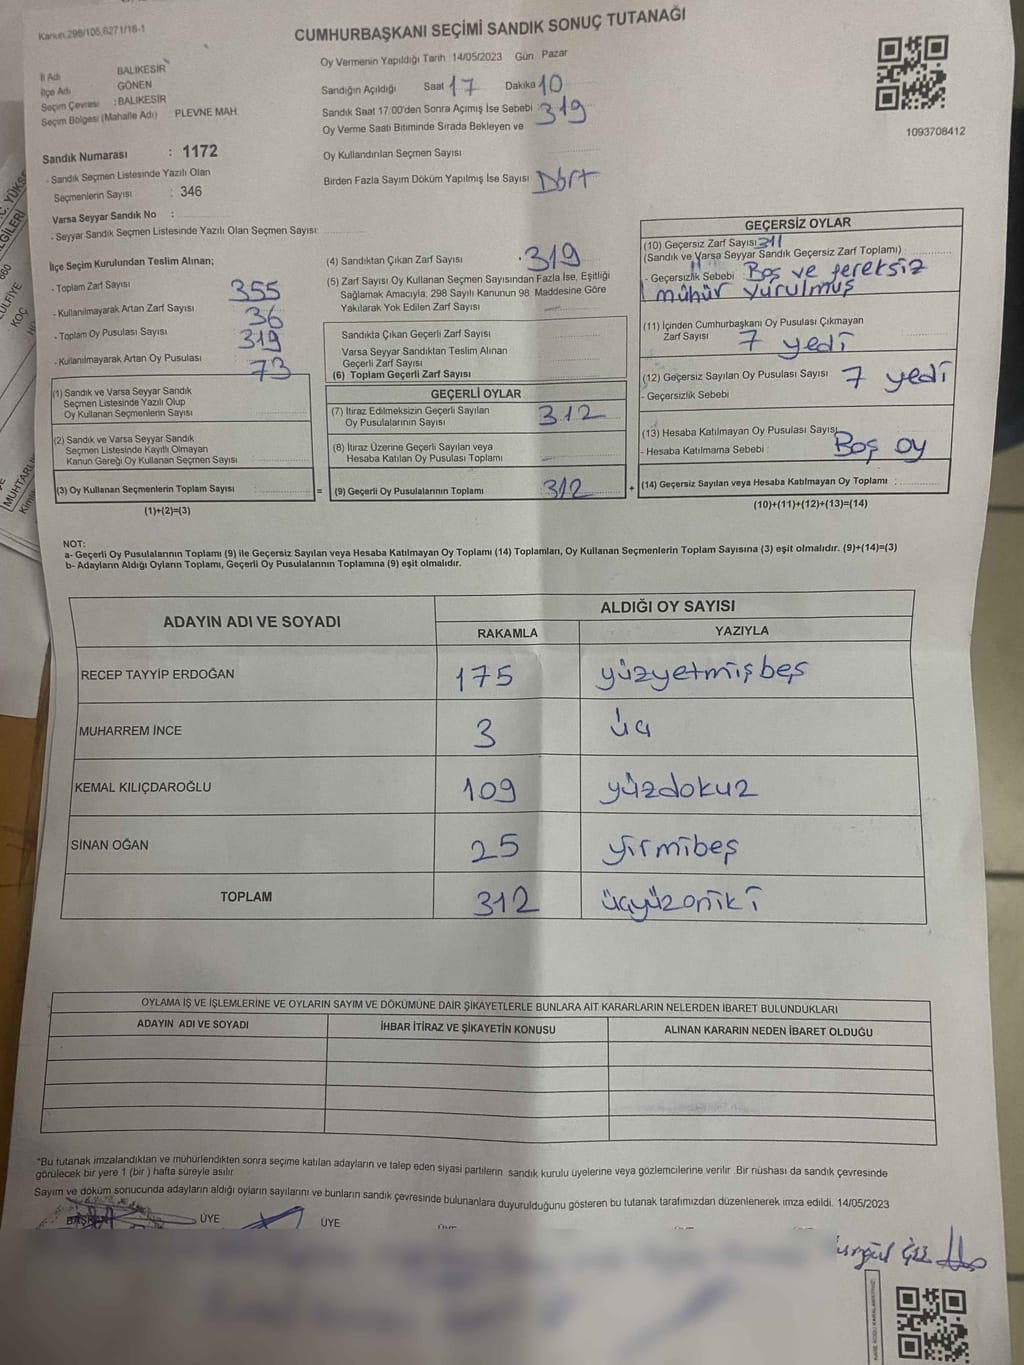 Kanun,298/105,6271/18-1
CUMHURBAŞKANI SEÇİMİ SANDIK SONUÇ TUTANAĞI
İl Adı BALIKESİR
İlçe Adı GÖNEN
Seçim Çevresi :BALIKESİR
Seçim Bölgesi (Mahalle Adı) PLEVNE MAH.
Sandık Numarası : 1172
- Sandık Seçmen Listesinde Yazılı Olan
Seçmenlerin Sayısı : 346
Varsa Seyyar Sandık No :
- Seyyar Sandık Seçmen Listesinde Yazılı Olan Seçmen Sayısı:
Oy Vermenin Yapıldığı Tarih 14/05/2023 Gün Pazar
Sandığın Açıldığı Saat 17 Dakika 10
Sandık Saat 17:00'den Sonra Açımış İse Sebebi : 319
Oy Verme Saati Bitiminde Sırada Bekleyen ve
Oy Kullandırılan Seçmen Sayısı
Birden Fazla Sayım Döküm Yapılmış İse Sayısı Dört
1093708412
İlçe Seçim Kurulundan Teslim Alınan;
- Toplam Zarf Sayısı 355
- Kullanılmayarak Artan Zarf Sayısı 36
- Toplam Oy Pusulası Sayısı 319
- Kullanılmayarak Artan Oy Pusulası 73
(1) Sandık ve Varsa Seyyar Sandık
Seçmen Listesinde Yazılı Olup
Oy Kullanan Seçmenlerin Sayısı
(2) Sandık ve Varsa Seyyar Sandık
Seçmen Listesinde Kayıtlı Olmayan
Kanun Gereği Oy Kullanan Seçmen Sayısı
(3) Oy Kullanan Seçmenlerin Toplam Sayısı : =
(1)+(2)=(3)
(4) Sandıktan Çıkan Zarf Sayısı 319
(5) Zarf Sayısı Oy Kullanan Seçmen Sayısından Fazla İse, Eşitliği
Sağlamak Amacıyla; 298 Sayılı Kanunun 98. Maddesine Göre
Yakılarak Yok Edilen Zarf Sayısı
Sandıkta Çıkan Geçerli Zarf Sayısı
Varsa Seyyar Sandıktan Teslim Alınan
Geçerli Zarf Sayısı
(6) Toplam Geçerli Zarf Sayısı
GEÇERLİ OYLAR
(7) İtiraz Edilmeksizin Geçerli Sayılan
Oy Pusulalarının Sayısı 312
(8) İtiraz Üzerine Geçerli Sayılan veya
Hesaba Katılan Oy Pusulası Toplamı
(9) Geçerli Oy Pusulalarının Toplamı 312 +
GEÇERSİZ OYLAR
(10) Geçersiz Zarf Sayısı
(Sandık ve Varsa Seyyar Sandık Geçersiz Zarf Toplamı)
- Geçersizlik Sebebi Boş ve fereksiz
mühür vurulmuş
(11) İçinden Cumhurbaşkanı Oy Pusulası Çıkmayan
Zarf Sayısı 7 yedi
(12) Geçersiz Sayılan Oy Pusulası Sayısı 7 yedi
- Geçersizlik Sebebi
(13) Hesaba Katılmayan Oy Pusulası Sayısı
- Hesaba Katılmama Sebebi : Boş oy
(14) Geçersiz Sayılan veya Hesaba Katılmayan Oy Toplamı :
(10)+(11)+(12)+(13)=(14)
NOT:
a- Geçerli Oy Pusulalarının Toplamı (9) ile Geçersiz Sayılan veya Hesaba Katılmayan Oy Toplamı (14) Toplamları, Oy Kullanan Seçmenlerin Toplam Sayısına (3) eşit olmalıdır. (9)+(14)=(3)
b- Adayların Aldığı Oyların Toplamı, Geçerli Oy Pusulalarının Toplamına (9) eşit olmalıdır.
ADAYIN ADI VE SOYADI
ALDIĞI OY SAYISI
RAKAMLA YAZIYLA
RECEP TAYYİP ERDOĞAN 175 yüzyetmişbeş
MUHARREM İNCE 3 üç
KEMAL KILIÇDAROĞLU 109 yüzdokuz
SİNAN OĞAN 25 yirmibeş
TOPLAM 312 üçyüzoniki
OYLAMA İŞ VE İŞLEMLERİNE VE OYLARIN SAYIM VE DÖKÜMÜNE DAİR ŞİKAYETLERLE BUNLARA AİT KARARLARIN NELERDEN İBARET BULUNDUKLARI
ADAYIN ADI VE SOYADI İHBAR İTİRAZ VE ŞİKAYETİN KONUSU ALINAN KARARIN NEDEN İBARET OLDUĞU
"Bu tutanak imzalandıktan ve mühürlendikten sonra seçime katılan adayların ve talep eden siyasi partilerin sandık kurulu üyelerine veya gözlemcilerine verilir .Bir nüshası da sandık çevresinde
görülecek bir yere 1 (bir ) hafta süreyle asılır.
Sayım ve döküm sonucunda adayların aldığı oyların sayılarını ve bunların sandık çevresinde bulunanlara duyurulduğunu gösteren bu tutanak tarafımızdan düzenlenerek imza edildi. 14/05/2023
BAŞKAN ÜYE ÜYE